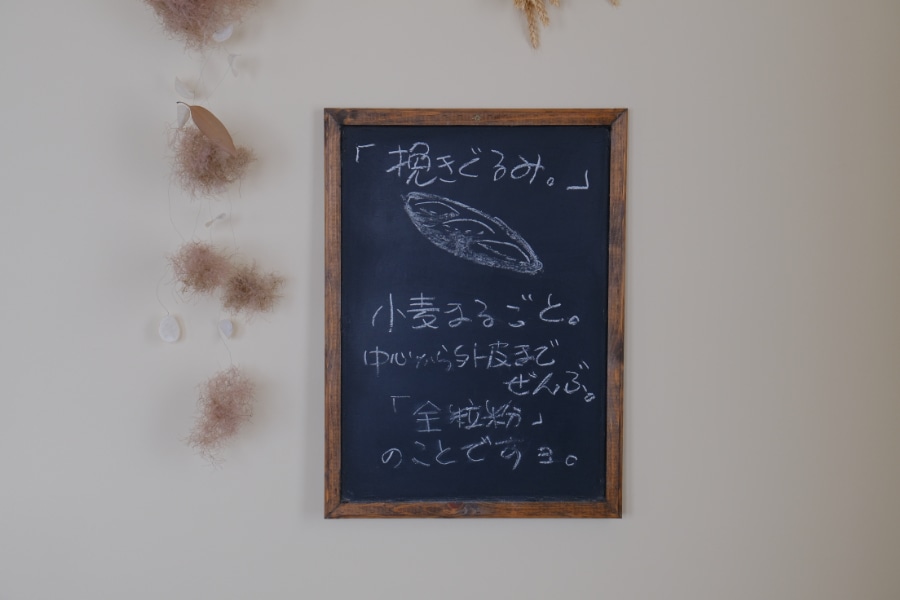 「挽きぐるみ。」
小麦まるごと。
中心から外皮まで
ぜんぶ。
「全粒粉」
のことですョ。